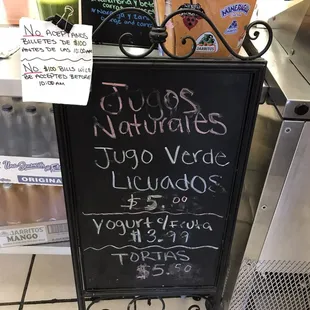 y zanahoria
carrot
MINERAGUA
JARRITOS
NO ACEPTAMOS
BILLETES DE $100
ANTES DE LAS 10:00AM
NO $100 BILLS WILL
BE ACCEPTED BEFORE
10:00AM
Jugos
Naturales
Jugo Verde
Licuados
$5.00
yogurt c/fruta
$3.99
TORTAS
$5.50
ORIGINAL
JARRITOS
MANGO